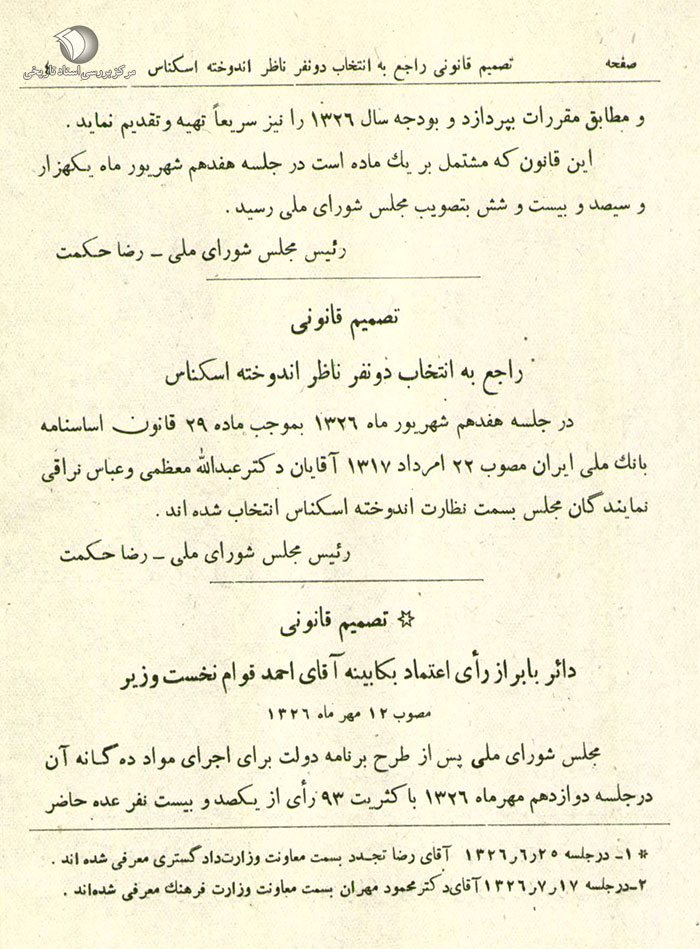 مرکز بررسی اسناد تاریخی
صفحه تصمیم قانونی راجع به انتخاب دونفر ناظر اندوخته اسکناس
و مطابق مقررات بپردازد و بودجه سال ۱۳۲۶ را نیز سریعاً تهیه و تقدیم نماید .
این قانون که مشتمل بر یك ماده است در جلسه هفدهم شهریور ماه یکهزار
و سیصد و بیست و شش بتصویب مجلس شورای ملی رسید .
رئیس مجلس شورای ملی ـ رضا حکمت
تصمیم قانونی
راجع به انتخاب دونفر ناظر اندوخته اسکناس
در جلسه هفدهم شهریور ماه ۱۳۲۶ بموجب ماده ۲۹ قانون اساسنامه
بانك ملی ایران مصوب ۲۲ امرداد ۱۳۱۷ آقایان دکترعبدالله معظمی وعباس نراقی
نمایندگان مجلس بسمت نظارت اندوخته اسکناس انتخاب شده اند .
رئیس مجلس شورای ملی ـ رضا حکمت
* تصمیم قانونی
دائر بابراز رأی اعتماد بکابینه آقای احمد قوام نخست وزیر
مصوب ۱۲ مهر ماه ۱۳۲۶
مجلس شورای ملی پس از طرح برنامه دولت برای اجرای مواد ده گانه آن
درجلسه دوازدهم مهرماه ۱۳۲۶ باکثریت ۹۳ رأی از یکصد و بیست نفر عده حاضر
* ۱ـ درجلسه ۲۵ر۶ر۱۳۲۶ آقای رضا تجدد بسمت معاونت وزارت‌دادگستری معرفی شده اند .
۲ـ درجلسه ۱۷ر۷ر۱۳۲۶ آقای‌دکترمحمود مهران بسمت معاونت وزارت فرهنك معرفی شده‌اند .